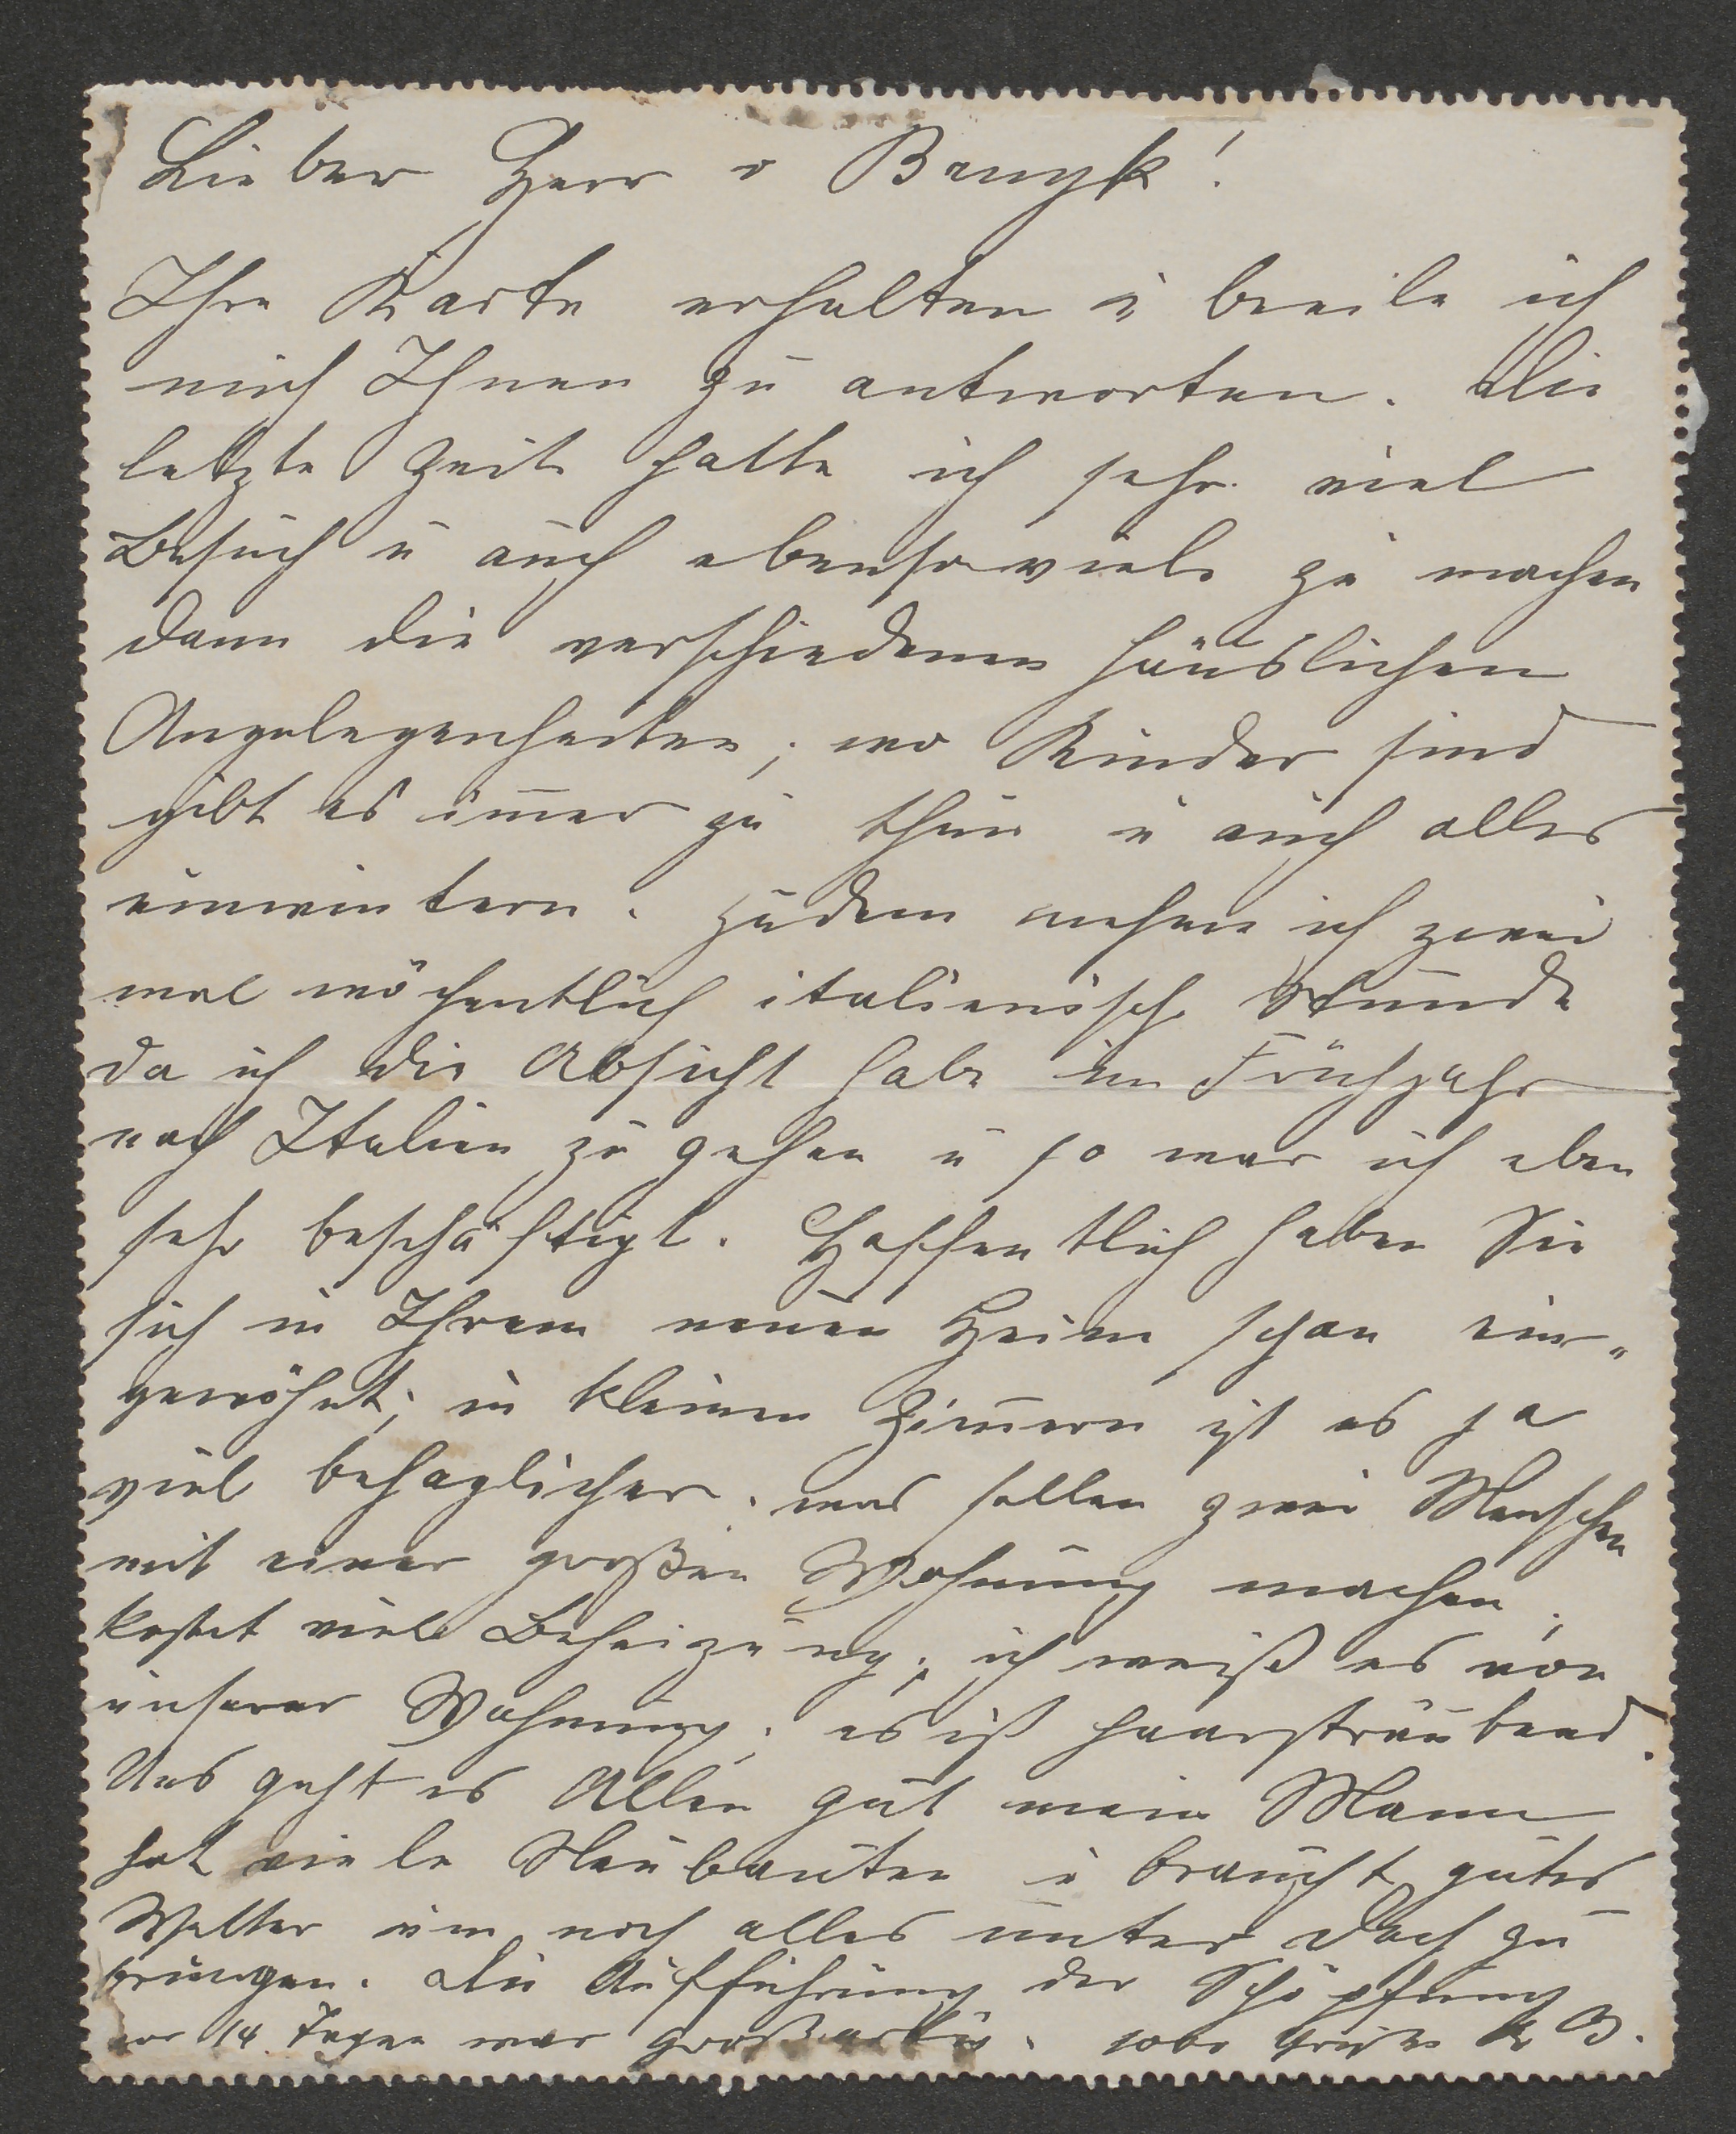 Lieber Herr v Bruyk!
Ihre Karte erhalten u beeile ich
mich Ihnen zu antworten. Die
letzte Zeit hatte ich sehr viel
Besuch u auch ebensoviele zu machen
dann die verschiedenen häuslichen
Angelegenheiten; wo Kinder sind
gibt es im̅er zu thun u auch alles
einwintern. Zudem nehme ich zwei
mal wöchentlich italienische Stunde
da ich die Absicht habe im Frühjahr
nach Italien zu gehen u so war ich eben
sehr beschäftigt. Hoffentlich haben Sie
sich in Ihrem neuen Heim schon ein„
gewöhnt; in kleinen Zim̅ern ist es ja
viel behaglicher. was sollen zwei Menschen
mit einer großen Wohnung machen,
kostet viele Beheizung; ich weiß es von
unserer Wohnung; es ist haarsträubend.
Uns geht es Allen gut mein Mann
hat viele Neubauten u braucht gutes
Wetter um noch alles unter Dach zu
bringen. Die Aufführung der Schöpfung
vor 14 Tagen war großartig. Grüße B.